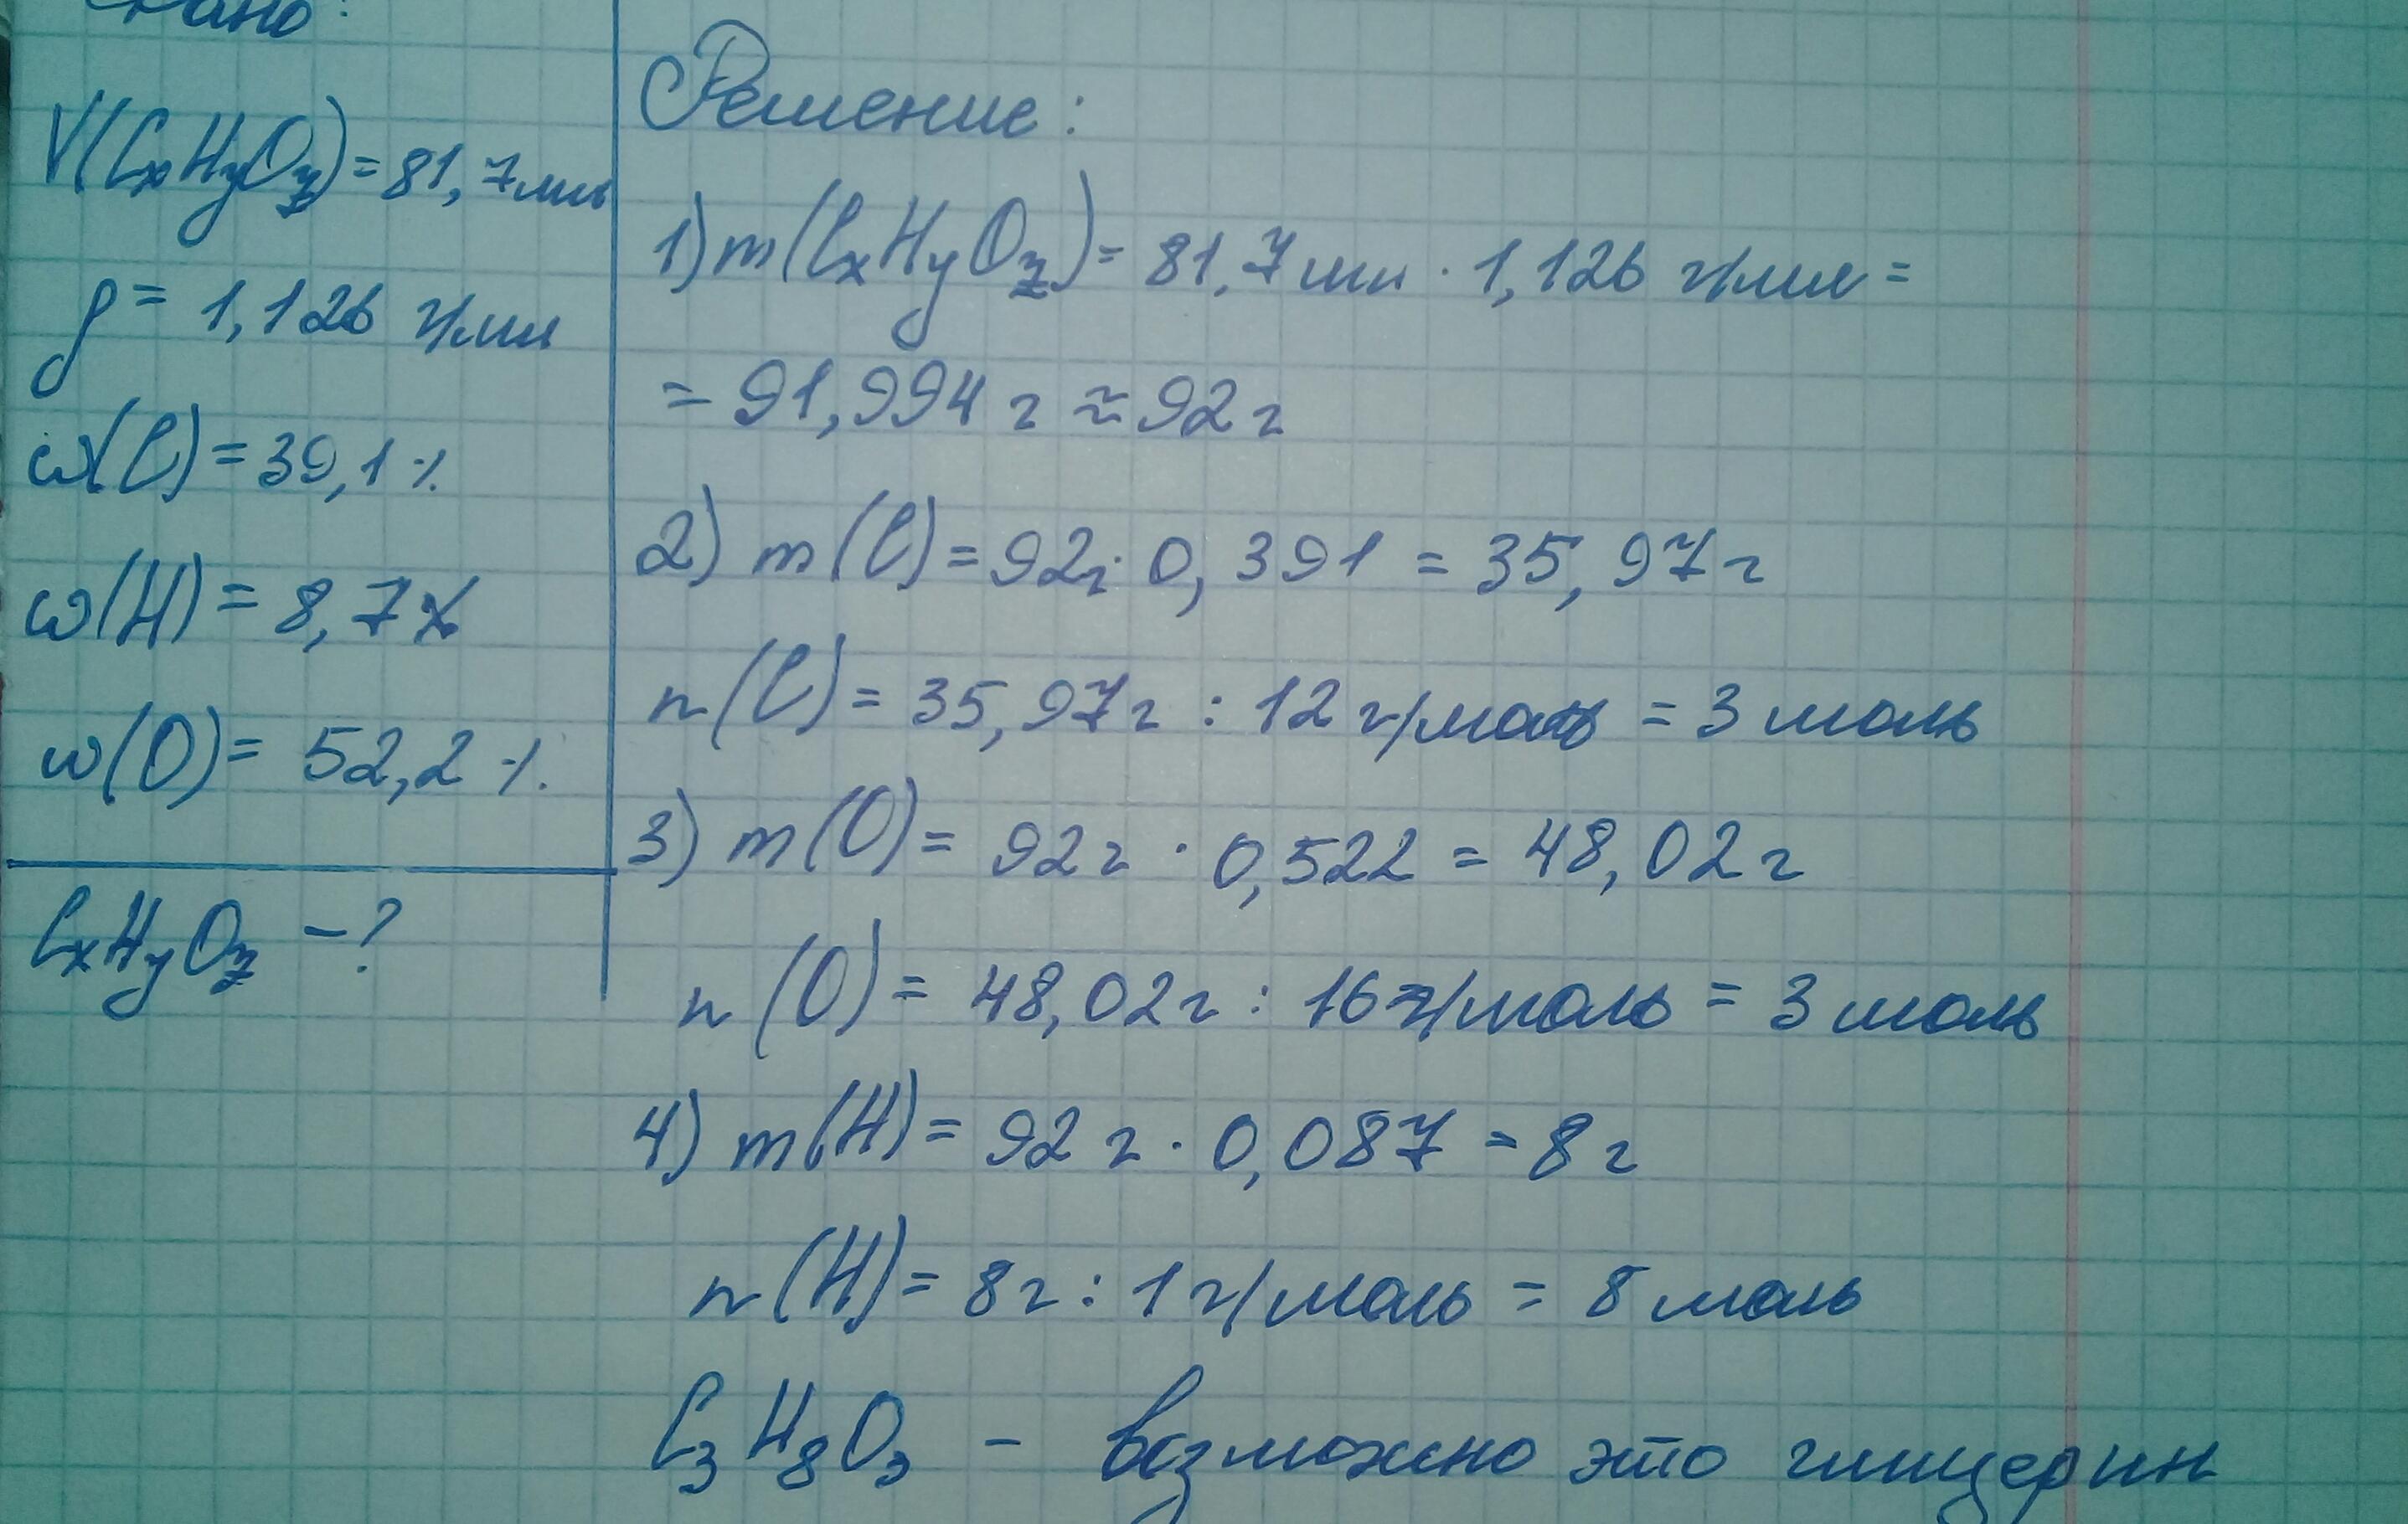 Дано:
V(CxHyOz) = 81,7 мл
ρ = 1,126 г/мл
ω(C) = 39,1 %
ω(H) = 8,7 %
ω(O) = 52,2 %
CxHyOz - ?
Решение:
1) m(CxHyOz) = 81,7 мл · 1,126 г/мл =
= 91,994 г ≈ 92 г
2) m(C) = 92 г · 0,391 = 35,97 г
n(C) = 35,97 г : 12 г/моль = 3 моль
3) m(O) = 92 г · 0,522 = 48,02 г
n(O) = 48,02 г : 16 г/моль = 3 моль
4) m(H) = 92 г · 0,087 = 8 г
n(H) = 8 г : 1 г/моль = 8 моль
C₃H₈O₃ - возможно это глицерин